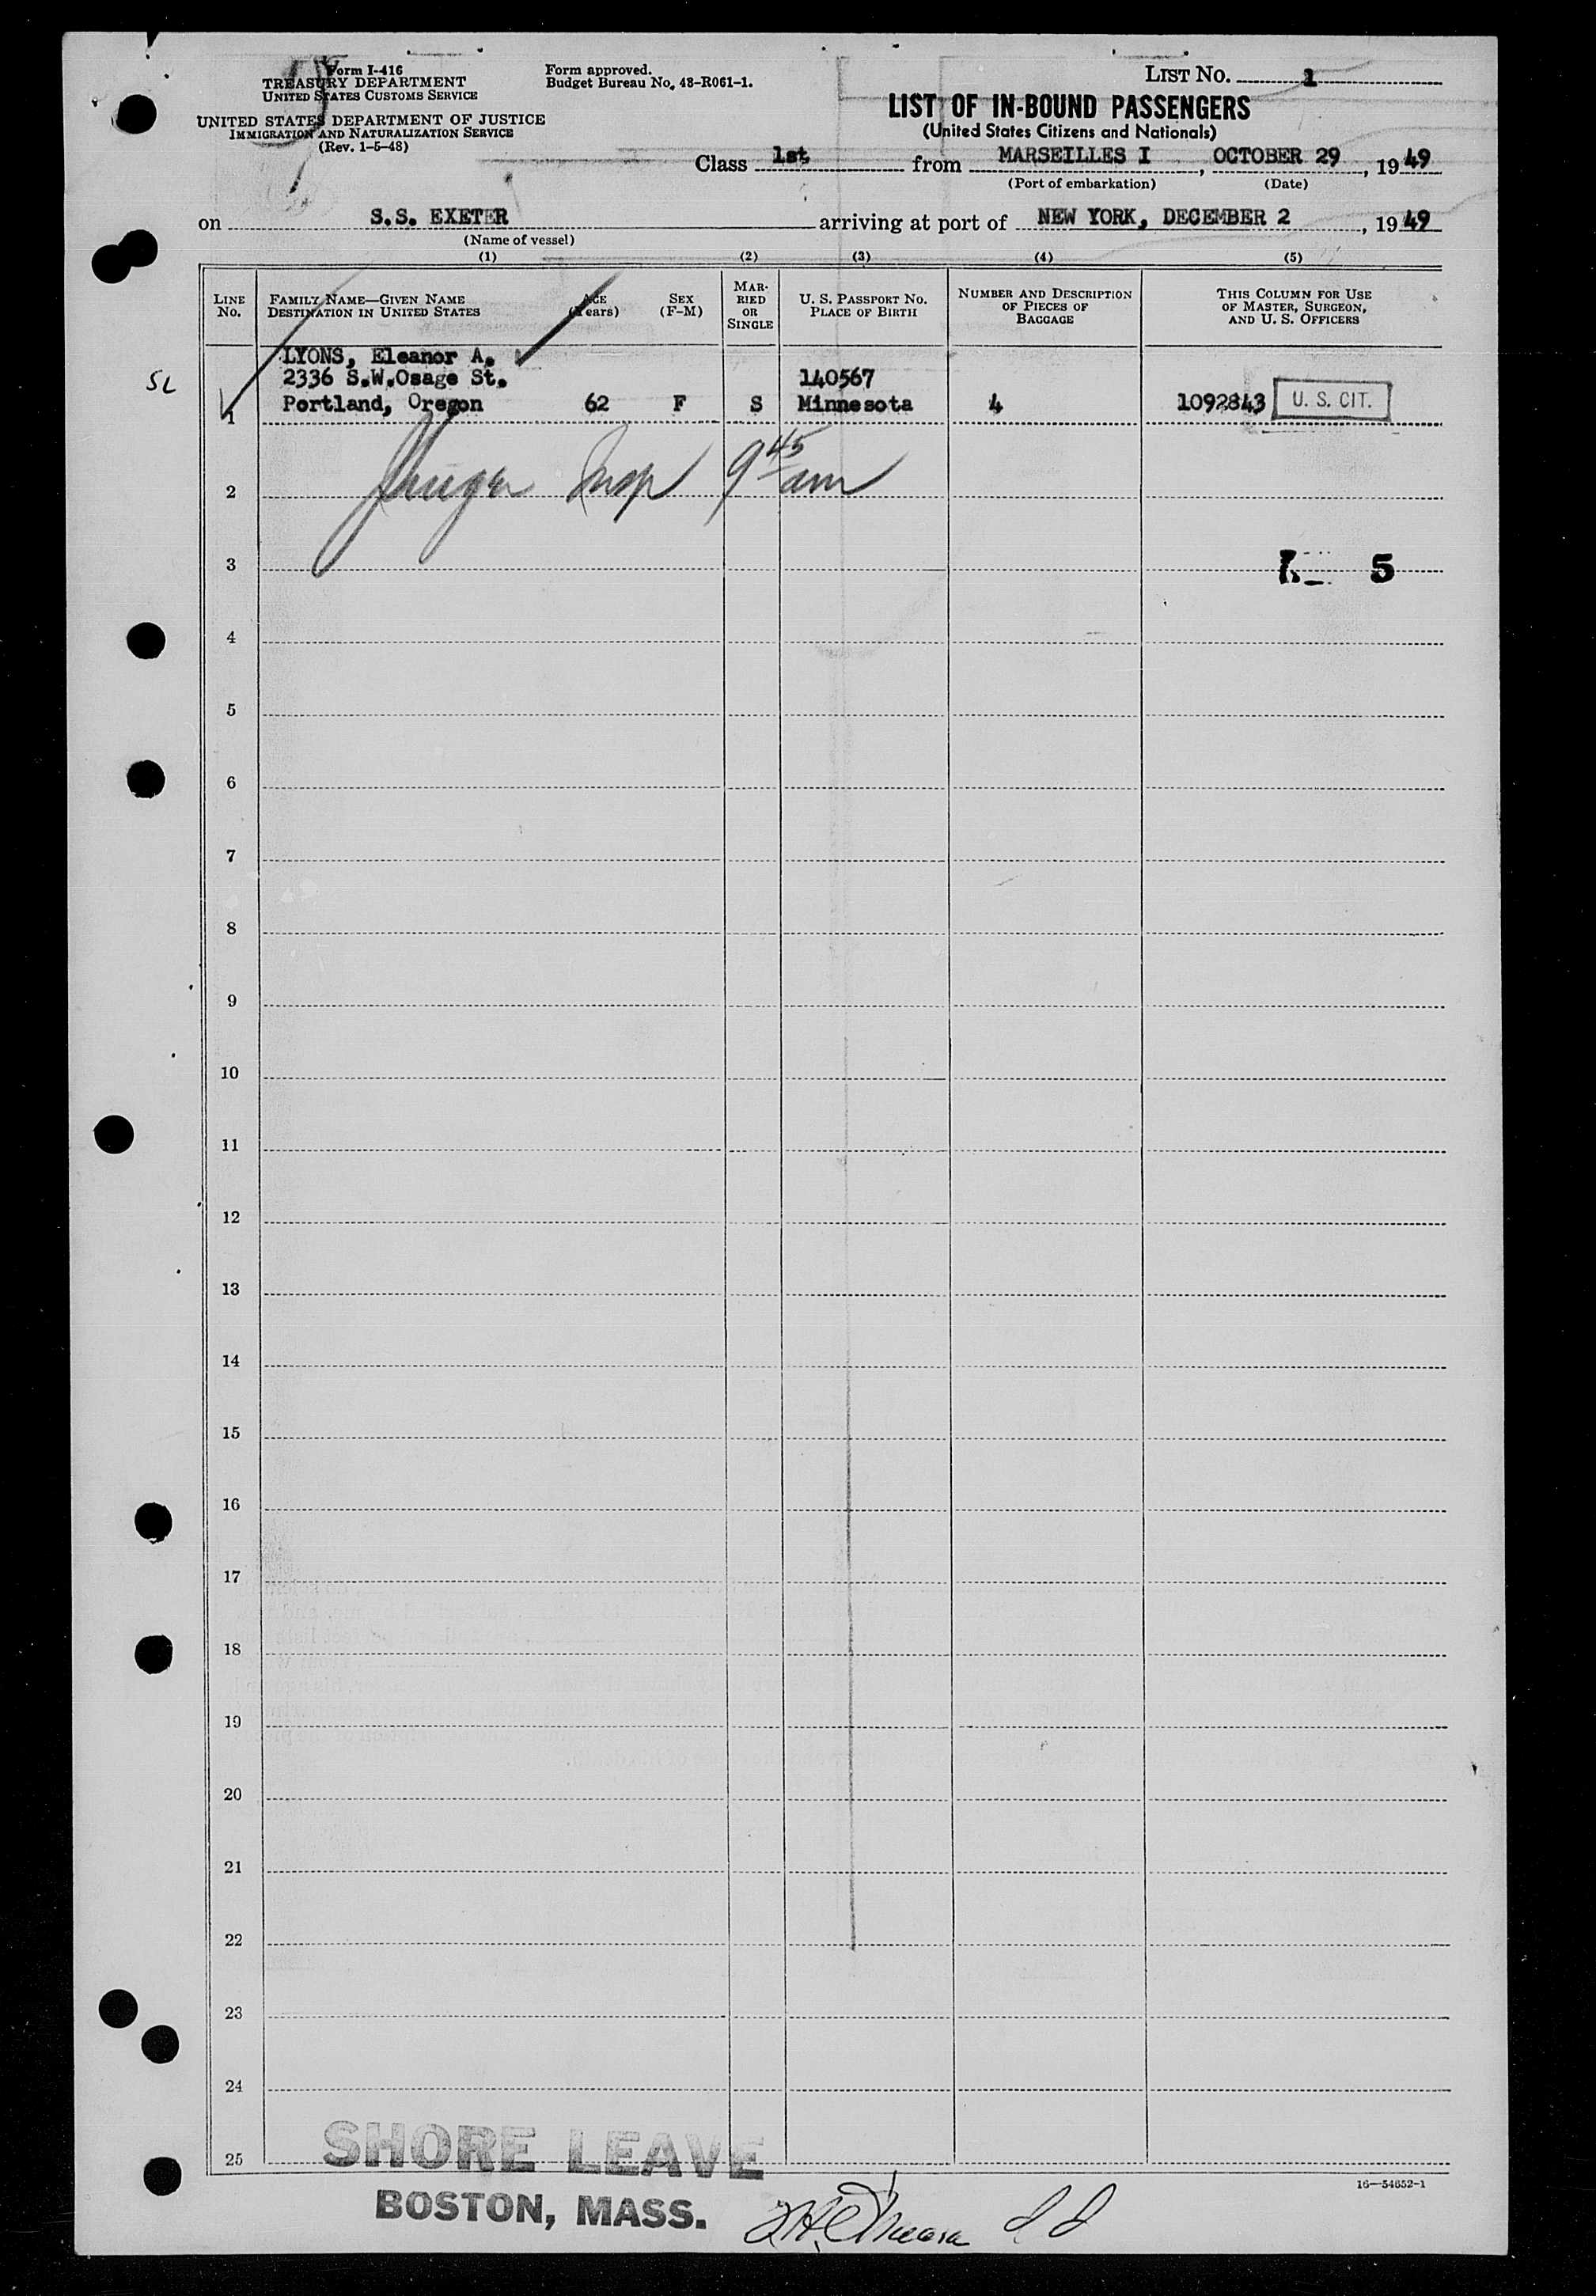 Form I-416
TREASURY DEPARTMENT
UNITED STATES CUSTOMS SERVICE
UNITED STATES DEPARTMENT OF JUSTICE
IMMIGRATION AND NATURALIZATION SERVICE
(Rev. 1-5-48)
Form approved.
Budget Bureau No. 43-R061-1.
LIST NO. 1
LIST OF IN-BOUND PASSENGERS
(United States Citizens and Nationals)
Class 1st from MARSEILLES I, OCTOBER 29, 1949
(Port of embarkation) (Date)
on S.S. EXETER arriving at port of NEW YORK, DECEMBER 2, 1949
(Name of vessel)
(1) (2) (3) (4) (5)
LINE NO.
FAMILY NAME—GIVEN NAME
DESTINATION IN UNITED STATES
AGE
(Years)
SEX
(F-M)
MAR-
RIED
OR
SINGLE
U. S. PASSPORT NO.
PLACE OF BIRTH
NUMBER AND DESCRIPTION
OF PIECES OF
BAGGAGE
THIS COLUMN FOR USE
OF MASTER, SURGEON,
AND U. S. OFFICERS
LYONS, Eleanor A.
SL 2336 S.W.Osage St. 140567
1 Portland, Oregon 62 F S Minnesota 4 1092843 U. S. CIT.
2 Insp 9 45 am
3 5
4
5
6
7
8
9
10
11
12
13
14
15
16
17
18
19
20
21
22
23
24
25
SHORE LEAVE
BOSTON, MASS.
16—54652-1